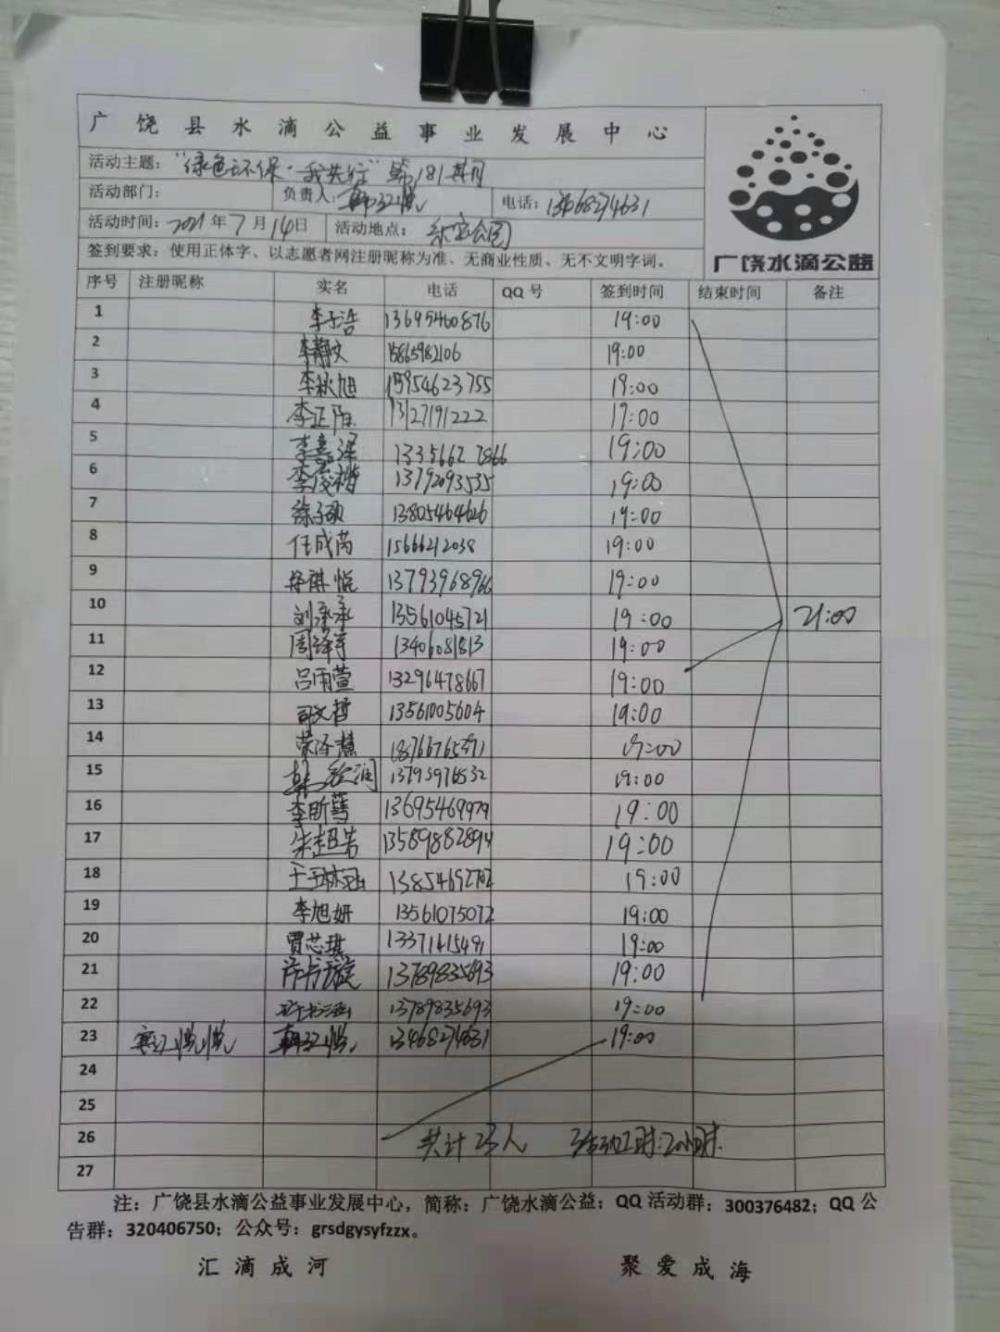 广饶县水滴公益事业发展中心
活动主题："绿色环保·我先行"第181期
活动部门： 负责人： 电话：13468274631
活动时间：2021年7月14日 活动地点：乐安公园
签到要求：使用正体字、以志愿者网注册昵称为准、无商业性质、无不文明字词。
广饶水滴公益
序号 注册昵称 实名 电话 QQ号 签到时间 结束时间 备注
1 李子浩 13695460876 19:00
2 李静文 15865982106 19:00
3 李秋旭 15954623755 19:00
4 李正阳 13127191222 19:00
5 1335662 7866 19:00
6 13792093535 19:00
7 徐子硕 13805464626 19:00
8 任成芮 15666212038 19:00
9 13793968966 19:00
10 刘承承 13561045721 19:00 21:00
11 13406081813 19:00
12 吕雨萱 13296478667 19:00
13 13561005604 19:00
14 荣泽慧 19:00
15 19:00
16 李昕 13695469979 19:00
17 朱超芳 13589882894 19:00
18 13854692702 19:00
19 李旭妍 13561075072 19:00
20 贾芯琪 13371415491 19:00
21 许书 13789835693 19:00
22 13789835693 19:00
23 13468274631 19:00
24
25
26 共计23人 活动工时:2小时
27
注：广饶县水滴公益事业发展中心，简称：广饶水滴公益；QQ活动群：300376482；QQ公
告群：320406750；公众号：grsdgysyfzzx。
汇滴成河 聚爱成海